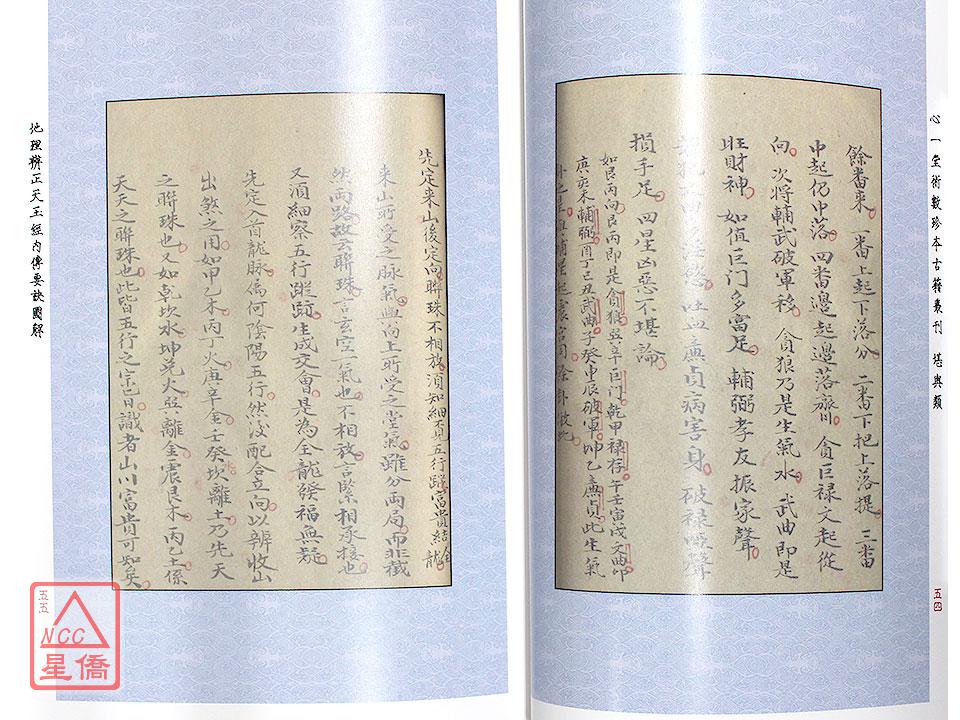 心一堂術數珍本古籍叢刊 堪輿類
餘番來 一番上起下落分 二番下把上落提 三番
中起仍中落 四番邊起邊落齊 貪巨祿文起從
向 次將輔武破軍移 貪狼乃是生氣水 武曲即是
旺財神 如值巨門多富足 輔弼孝友振家聲
慾 吐血廉貞病害身 破祿啞聾
損手足 四星凶惡不堪論
如艮丙向艮丙即是貪狼巽辛巨門乾甲祿存午壬寅戌文曲卯
庚亥未輔弼酉丁巳丑武曲子癸申辰破軍坤乙廉貞此生氣
五四
先定來山後定向聯珠不相放須知細覓五行蹤富貴結全龍
來山所受之脈氣與向上所受之堂氣雖分兩局而非截
然兩路故云聯珠言玄空一氣也不相放言緊相承接也
又須細察五行蹤跡生成交會是為全龍發福無疑
先定入首龍脈屬何陰陽五行然後配合立向以辨收山
出煞之用如甲乙木丙丁火庚辛金壬癸坎離土乃先天
之聯珠也又如乾坎水坤兌火巽離金震艮木丙乙土係
天之聯珠也此皆五行之宗旨識者山川富貴可知矣
地理辨正天玉經內傳要訣圖解
五五
NCC
星僑